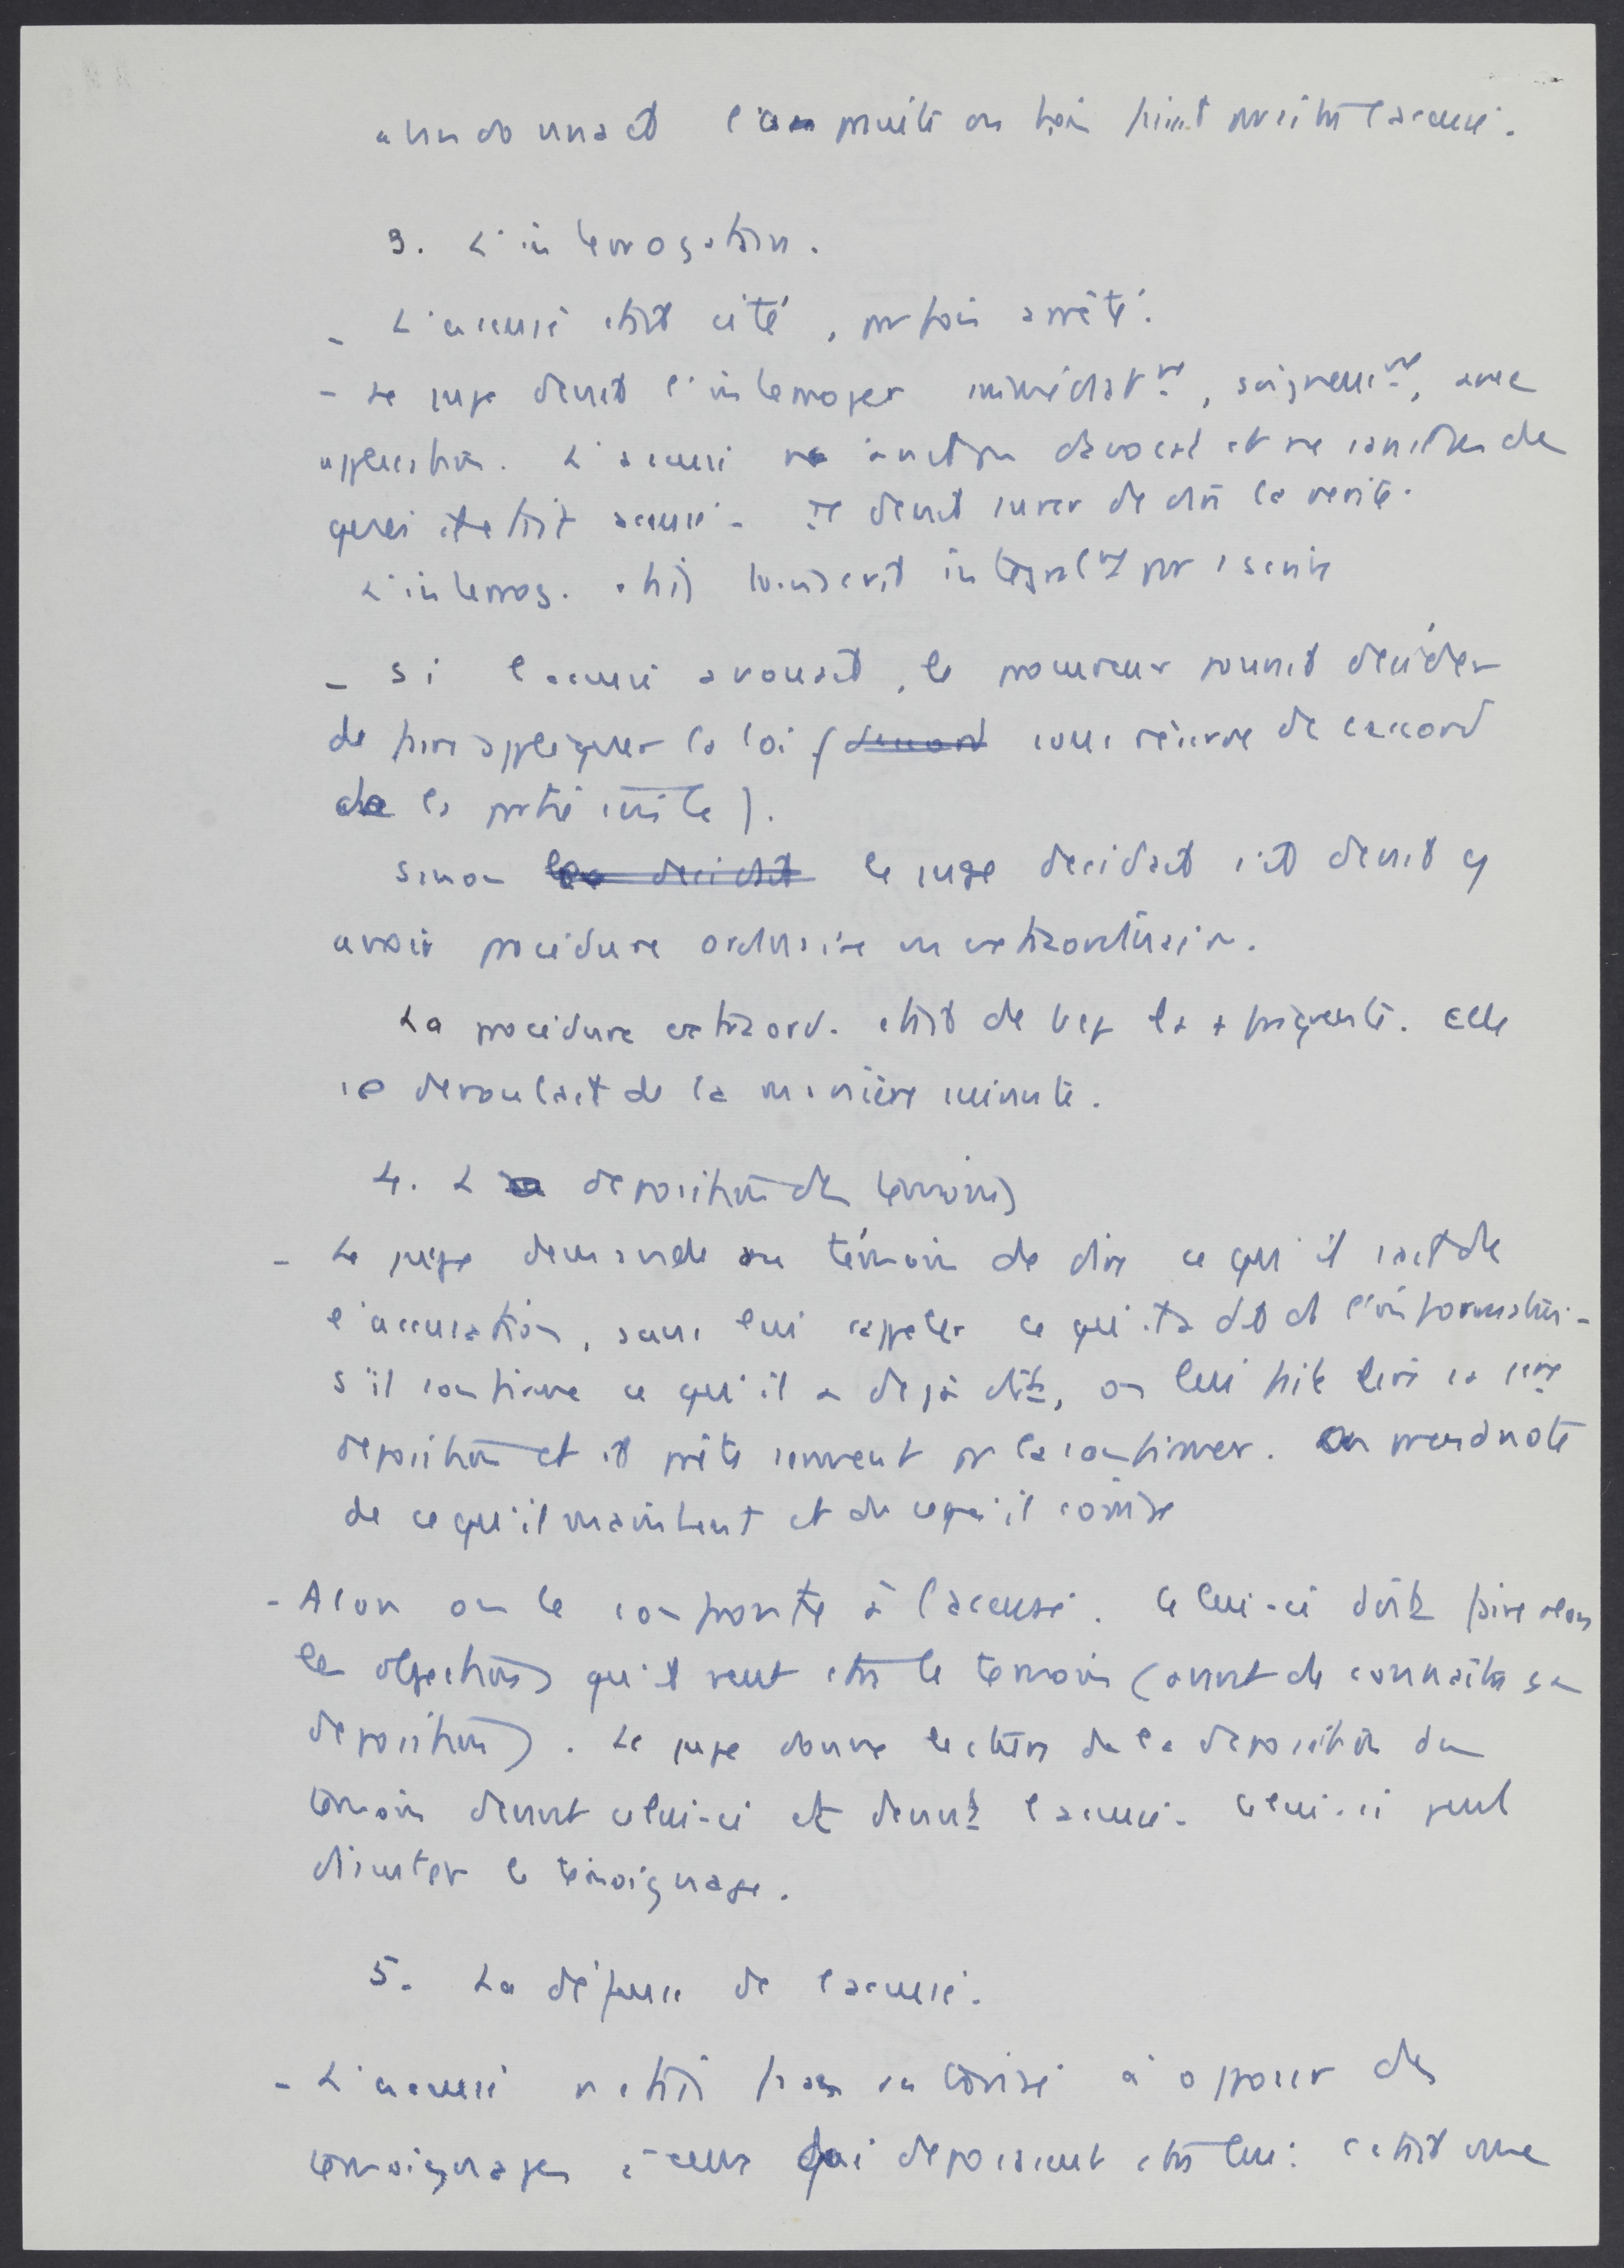 abandonnait l'impunité ou bien finit
3. L'interrogation.
- L'accusé était cité, parfois arrêté.
- Le juge devait l'interroger immédiatmt, soigneusmt, avec
application. L'accusé n'avait pas d'avocat et ne
quoi était accusé. Il devait jurer de dire la vérité.
L'interrog. était transcrit intégralmt par écrit
- Si l'accusé avouait, le procureur pouvait décider
de faire appliquer la loi (sous réserve de l'accord
de la partie civile).
Sinon le juge décidait s'il devait y
avoir procédure ordinaire ou extraordinaire.
La procédure extraord. était de bcp la + fréquente. Elle
se déroulait de la manière suivante.
4. La déposition des témoins
- Le juge demande au témoin de dire ce qu'il sait de
l'accusation, sans lui rappeler ce qu'il a dit ds l'information.
S'il confirme ce qu'il a déjà dit, on lui fait lire sa 1ère
déposition et il prête serment pr la confirmer. On prend note
de ce qu'il maintient et de ce qu'il corrige
- Alors on le confronte à l'accusé. Celui-ci doit faire alors
les objections qu'il veut ctre le témoin (avant de connaître sa
déposition). Le juge donne lecture de la déposition du
témoin devant celui-ci et devant l'accusé. Celui-ci peut
discuter le témoignage.
5. La défense de l'accusé.
- L'accusé n'était pas autorisé à opposer des
témoignages à ceux qui déposaient ctre lui : c'était une